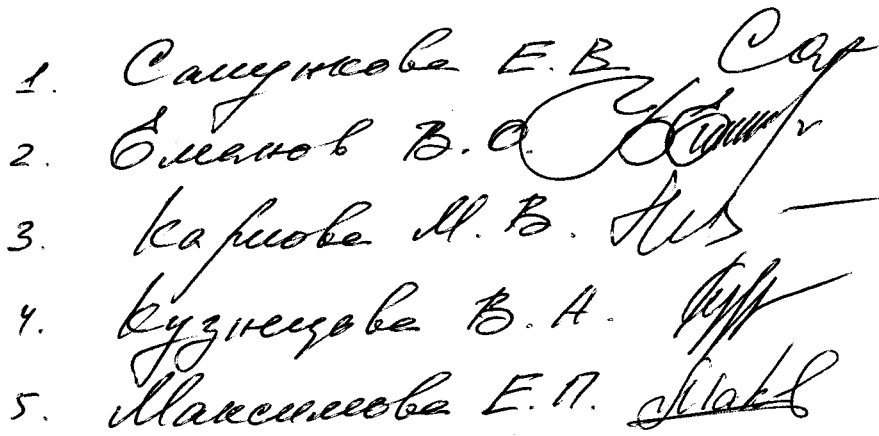 1. Самункова Е.В.
2. Еманов В.О.
3. Карпова М.В.
4. Кузнецова В.А.
5. Максимова Е.П.